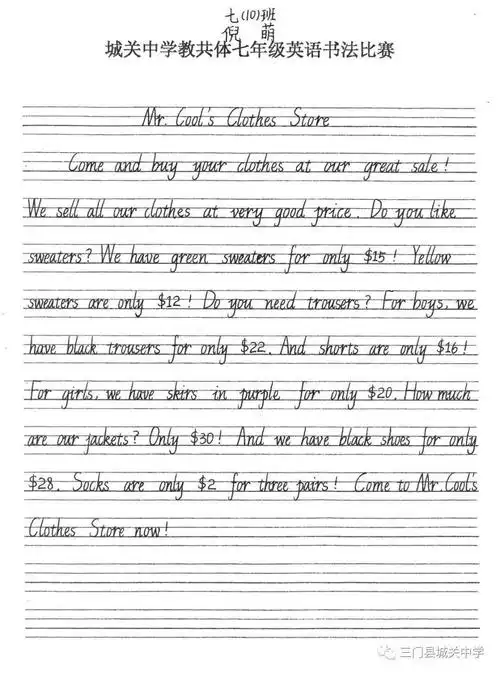 七(10)班
倪 萌
城关中学教共体七年级英语书法比赛
Mr. Cool's Clothes Store
Come and buy your clothes at our great sale!
We sell all our clothes at very good price. Do you like
sweaters? We have green sweaters for only $15! Yellow
sweaters are only $12! Do you need trousers? For boys, we
have black trousers for only $22. And shorts are only $16!
For girls, we have skirs in purple for only $20. How much
are our jackets? Only $30! And we have black shoes for only
$28. Socks are only $2 for three pairs! Come to Mr. Cool's
Clothes Store now!
三门县城关中学